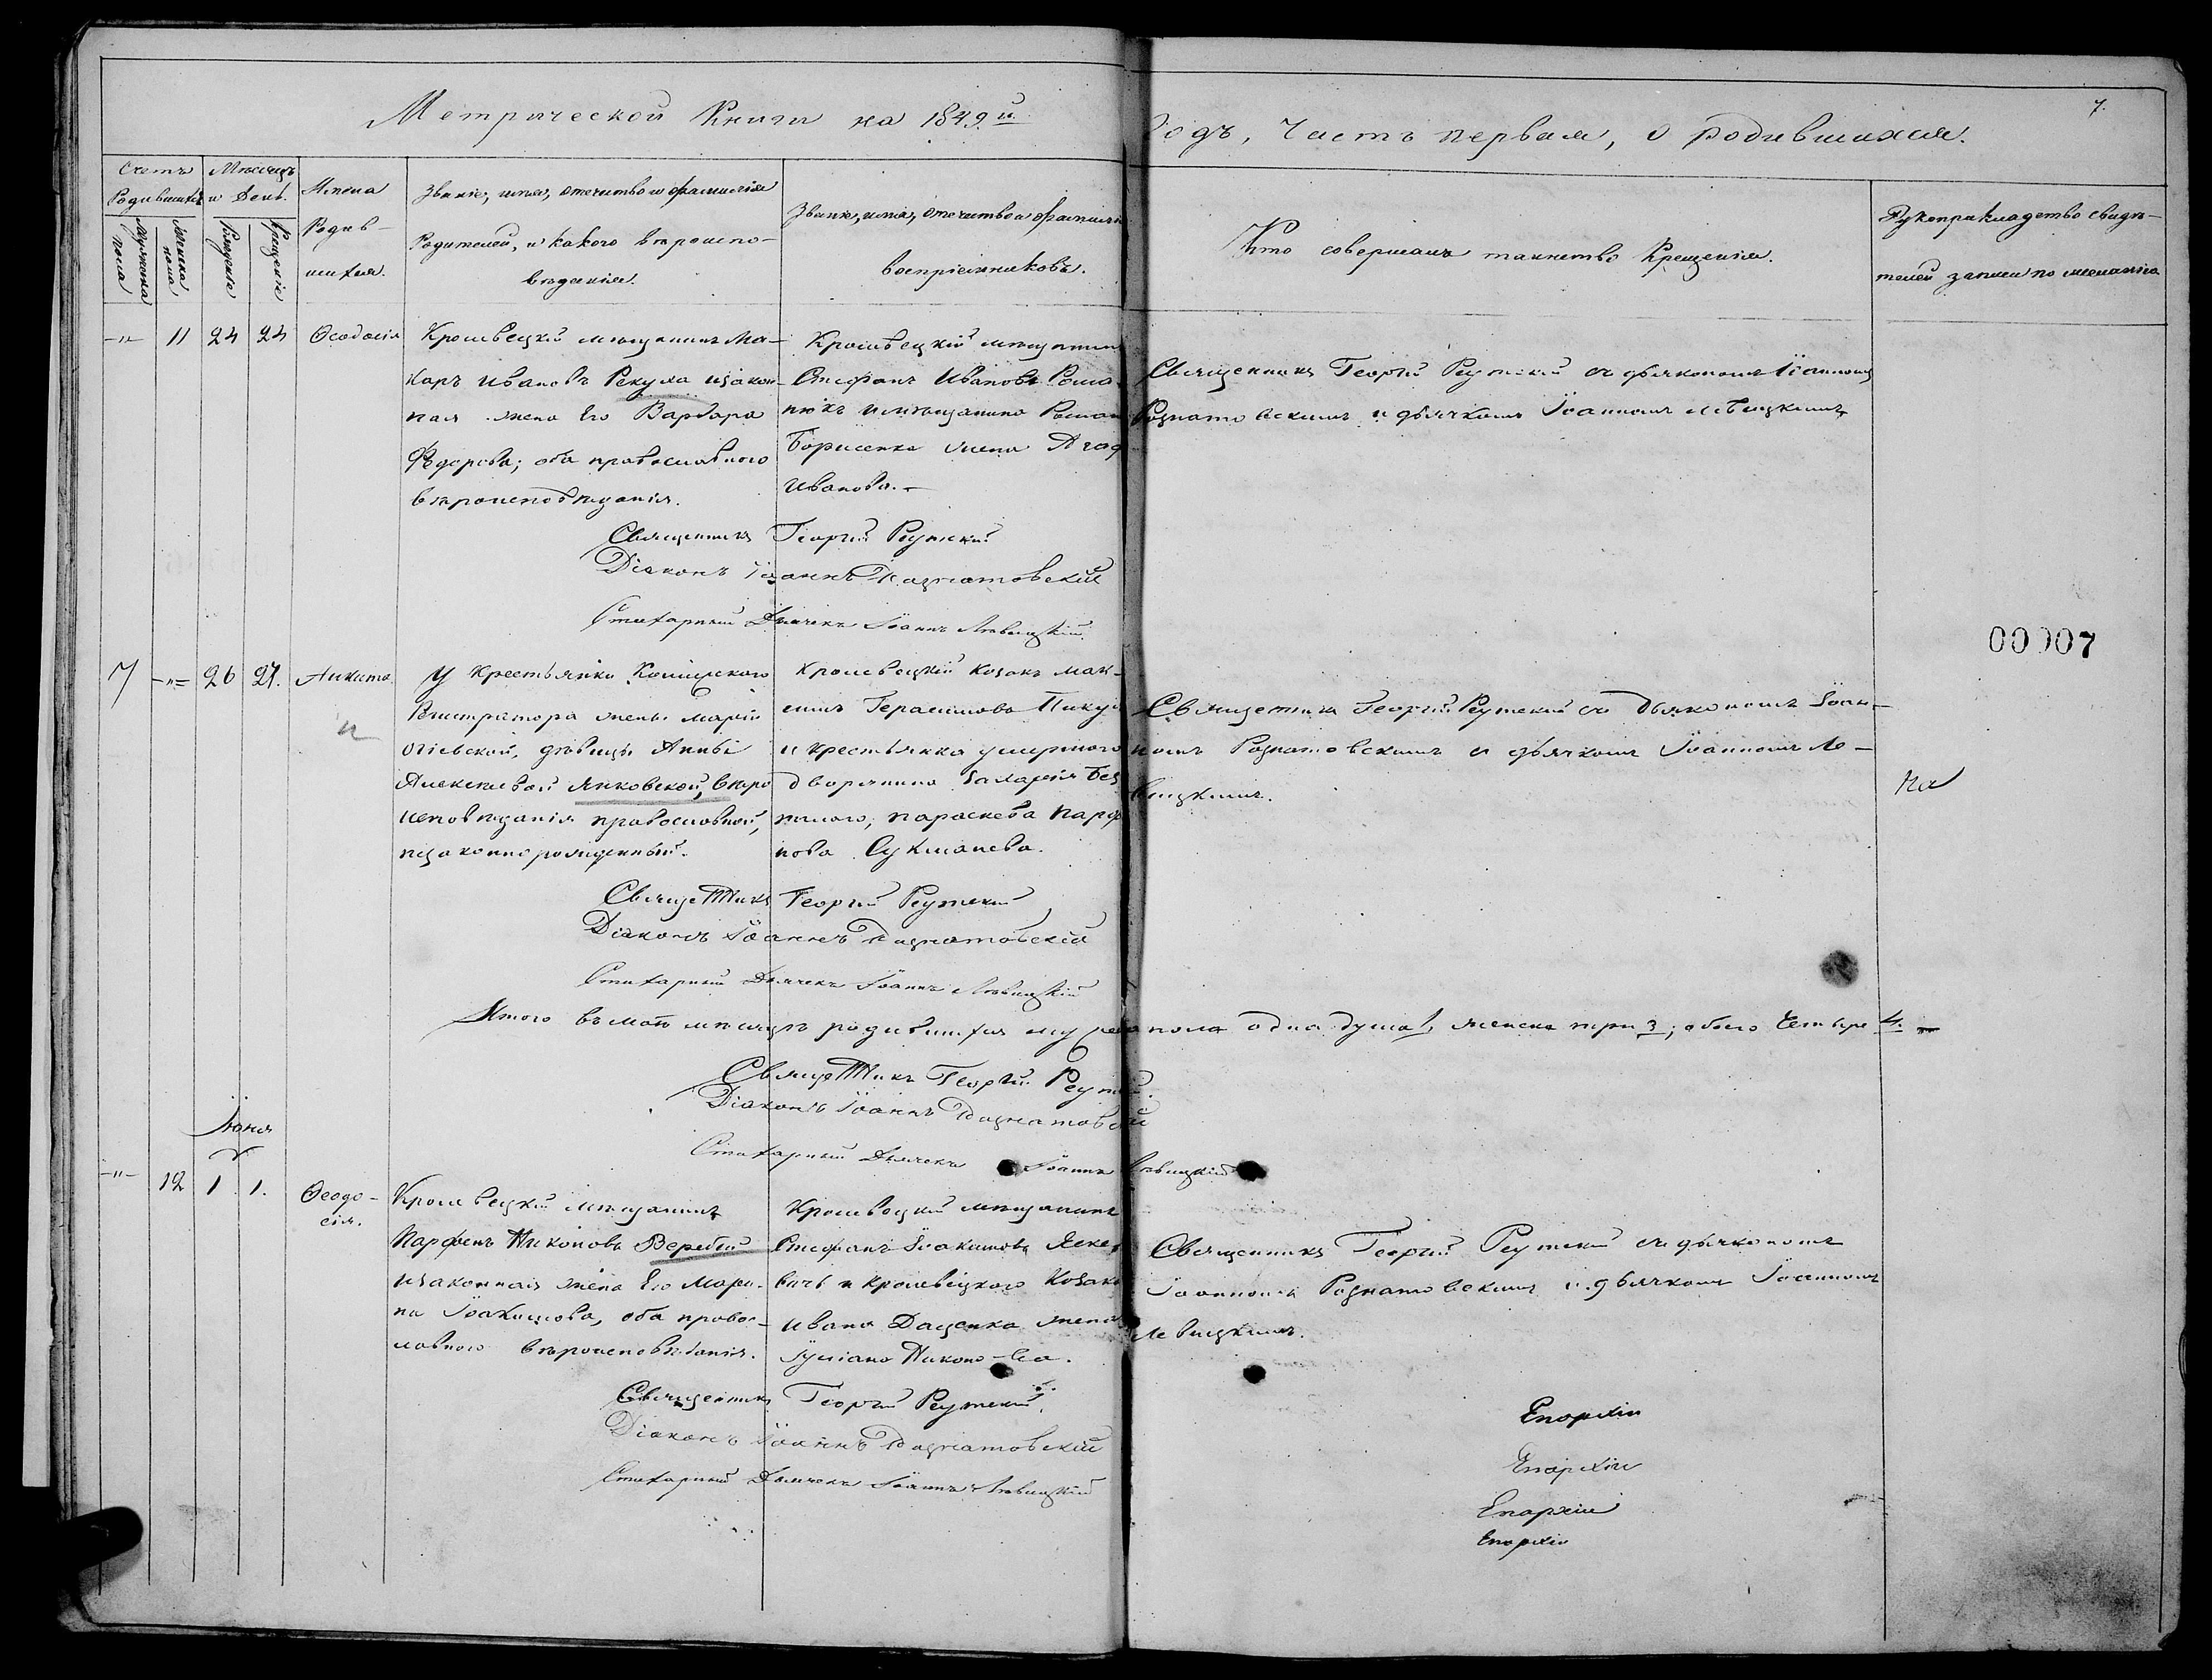 Метрической Книги на 1849й
Годъ, Часть первая, о родившихся.
7.
Счетъ Родившихся
Мѣсяцъ и День.
Имена Родив-
шихся.
Званіе, имя, отечество и фамилія
Родителей, и какого вѣроиспо-
вѣданія.
Званіе, имя, отечество и фамилія
воспріемниковъ.
Кто совершалъ таинство Крещенія.
Рукоприкладство свидѣ-
телей записи по желанію
Мужеска пола
Женска пола
Рожденіе
Крещеніе
-"- 11 24 24 Ѳеодосія
Кролевецкій мѣщанинъ Ма-
каръ Ивановъ Рекуха и закон-
ная жена Его Варвара
Федорова; оба православного
вѣроисповѣданія.
Кролевецкій мѣщанинъ
Стефанъ Ивановъ Рома-
нюкъ и мѣщанина Роман
Борисенка жена Агаф
Иванова.
Священникъ Георгій Реутскій съ дьякономъ Іоанномъ
Рознатовскимъ и дьячкомъ Іоанномъ Левицкимъ
Священникъ Георгій Реутскій
Діаконъ Іоаннъ Рознатовскій
Стихарный Дьячекъ Іоаннъ Левицкій
00007
7 -"- 26 27. Аникита
У Крестьянки Колежского
Регистратора жены Маріи
Огіевской, дѣвицы Анны
Алексѣевой Янковской, вѣро
исповѣданія православной,
незаконнорожденный.
Кролевецкій козакъ Мак-
симъ Герасимовъ Пикул
и крестьянка умершого
дворянина Захарія Без
палого, Параскева Парф
нова Сукманева.
Священникъ Георгій Реутскій съ Дьякономъ Іоан-
номъ Рознатовскимъ и дьячкомъ Іоанномъ Ле-
вицкимъ.
На
Священникъ Георгій Реутскій
Діаконъ Іоаннъ Рознатовскій
Стихарный Дьячекъ Іоаннъ Левицкій
Итого въ маѣ мѣсяцѣ родившихся мужеска пола одна душа 1, женска три 3; обоего Четыре 4.
Священникъ Георгій Реутскій.
Діаконъ Іоаннъ Рознатовскій
Стихарный Дьячекъ Іоаннъ Левицкій
Іюня
-"- 12 1 1. Ѳеодо-
сія.
Кролевецкій мѣщанинъ
Парфенъ Никоновъ Веребей
и законная жена Его Мари-
на Іоакимова, оба правос-
лавного вѣроисповѣданія.
Кролевецкій мѣщанинъ
Стефанъ Іоакимовъ Яске-
вичъ и кролевецкого Козака
Ивана Даценка жена
Іуліана Никоно-ва.
Священникъ Георгій Реутскій съ дьякономъ
Іоанномъ Рознатовскимъ и дьячкомъ Іоанномъ
Левицкимъ.
Священникъ Георгій Реутскій.
Діаконъ Іоаннъ Рознатовскій
Стихарный Дьячекъ Іоаннъ Левицкій
Епархіи
Епархіи
Епархіи
Епархіи